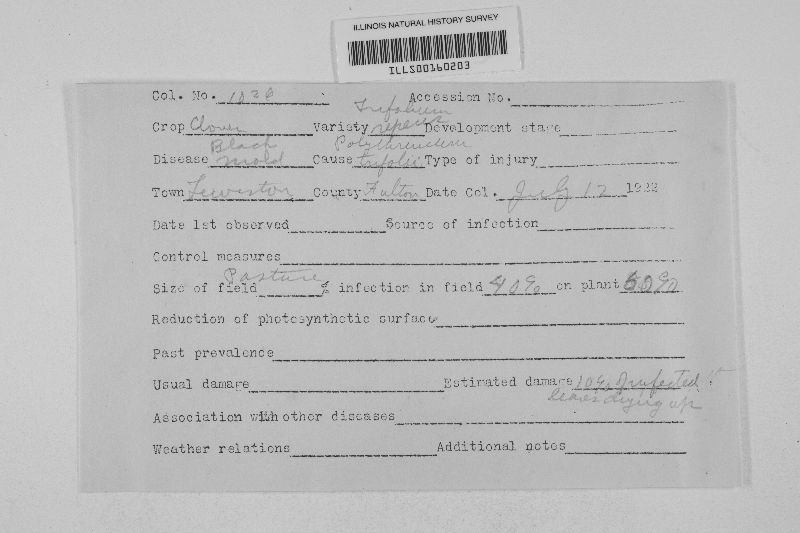 ILLINOIS NATURAL HISTORY SURVEY
ILLS00160203
Col. No. 1026 Accession No.
Crop Clover Variety Trifolium repens Development stage
Disease Black mold Cause Polythrincium trifolii Type of injury
Town Lewistown County Fulton Date Col. July 12 1922
Date 1st observed Source of infection
Control measures
Size of field Pasture % infection in field 40% on plant 50%
Reduction of photosynthetic surface
Past prevalence
Usual damage Estimated damage 10% Infected
leaves drying up
Association with other diseases
Weather relations Additional notes